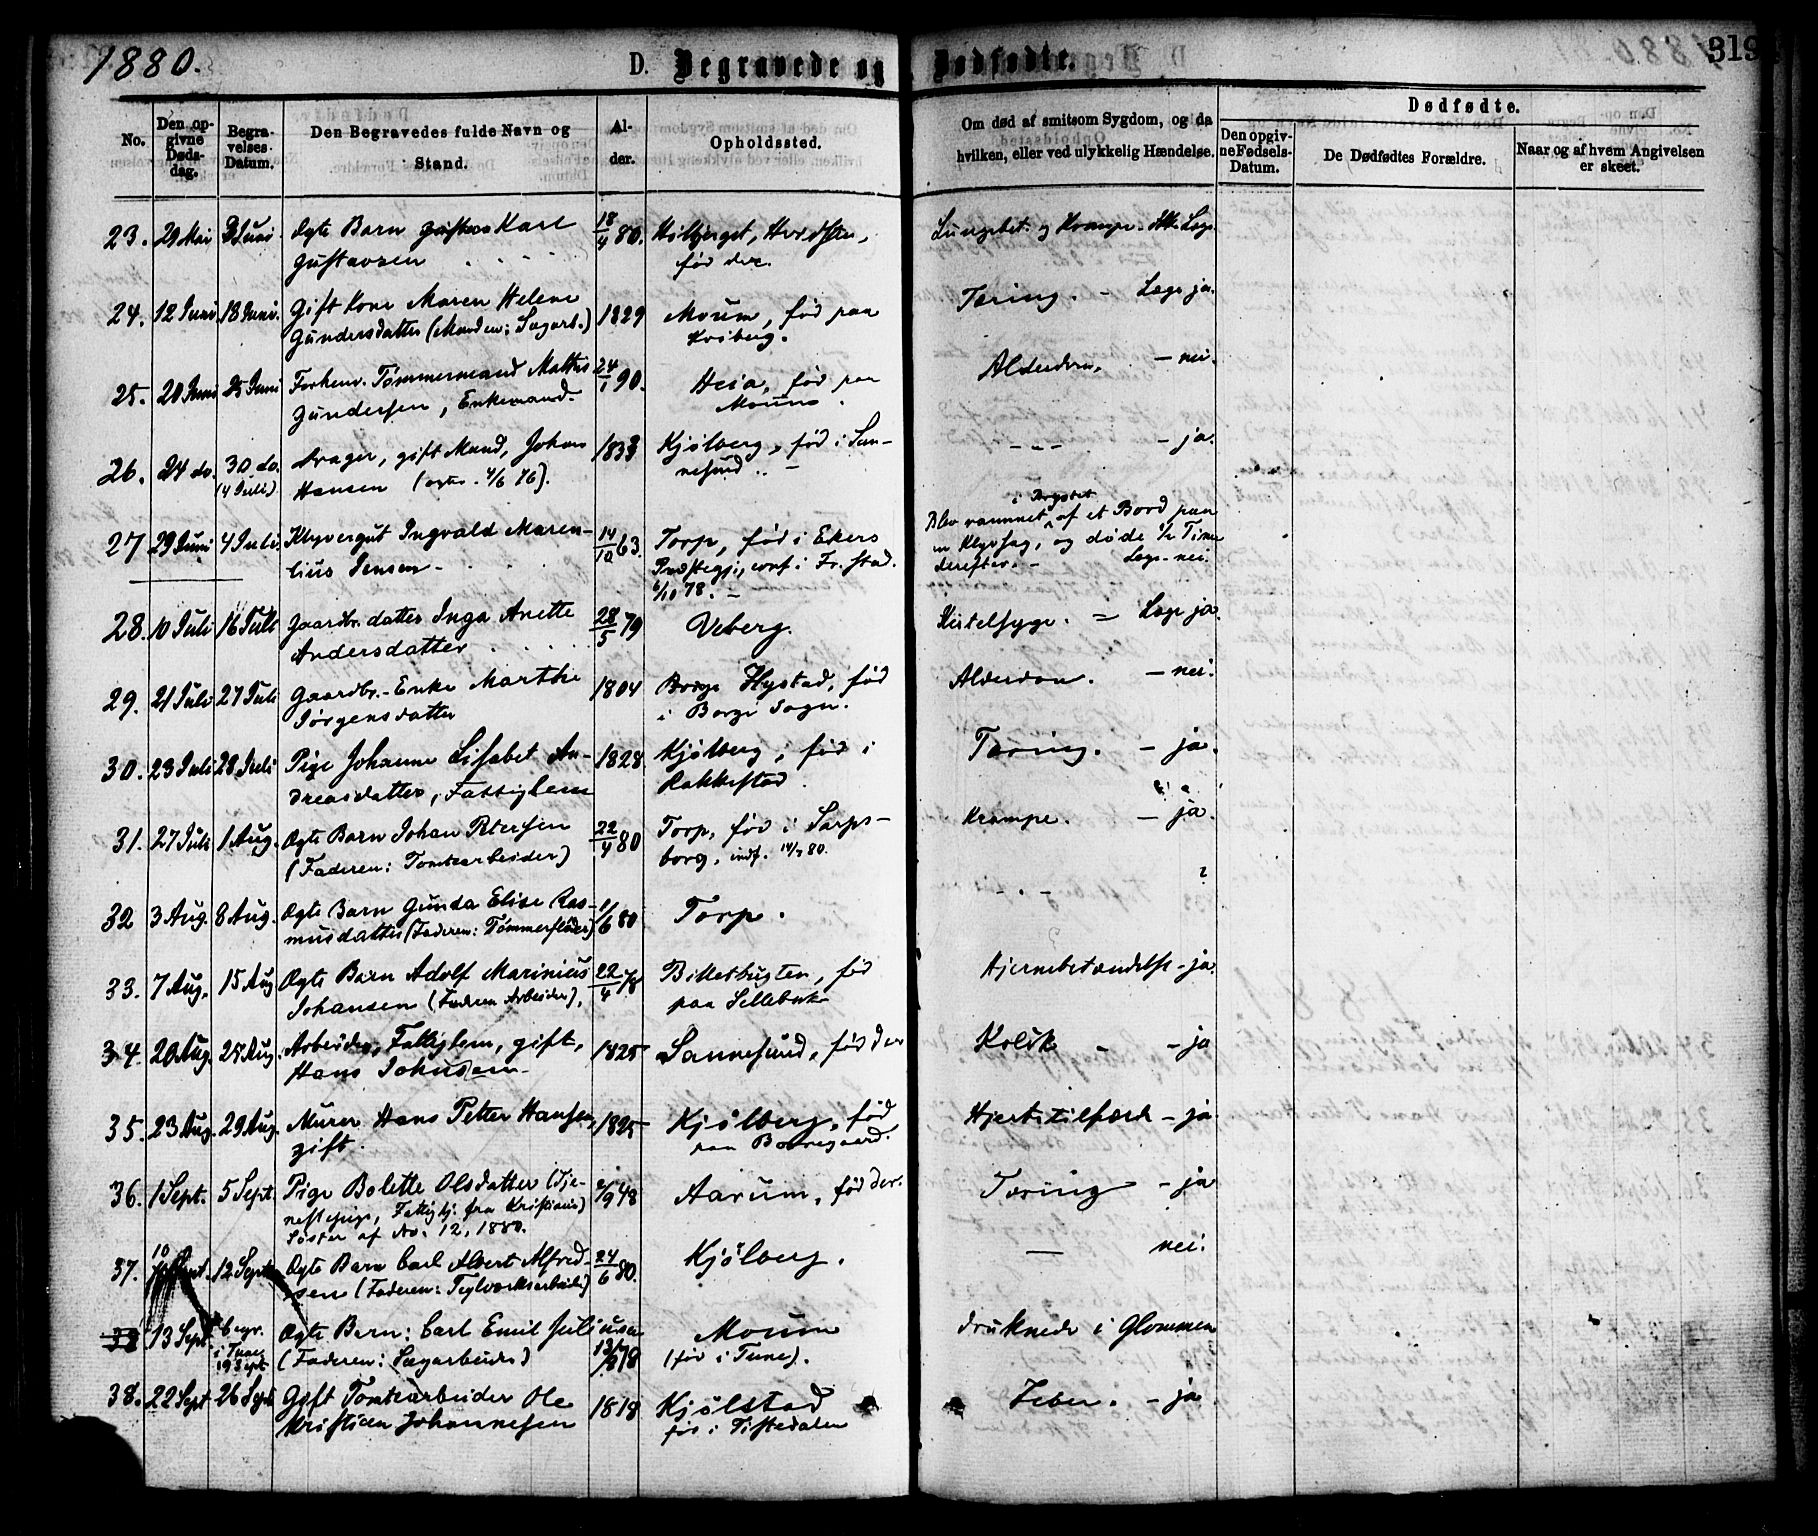 1880.
D. Begravede og Dødfødte.
319
No.
Den opgivne Dødsdag.
Begravelses Datum.
Den Begravedes fulde Navn og Stand.
Alder.
Opholdssted.
Om død af smitsom Sygdom, og da hvilken, eller ved ulykkelig Hændelse.
Dødfødte.
Den opgivne Fødsels-Datum.
De Dødfødtes Forældre.
Naar og af hvem Angivelsen er skeet.
23. 29 Mai Juni Ægte Barn Karl 18/4 80. født der.
Gustavsen
24. 12 Juni 18 Juni. Gift Kone Maren Helene 1829 Moum, født paa Tæring. - Læge ja.
Gundersdatter (Manden: Sagarb.)
25. 20 Juni 25 Juni Forhenv. Tømmermand Mathis 24/1 90. Heia, født paa Alderdom. - nei.
Gundersen, Enkemand. Moum.
26. 24 do. 30 do. gift Mand, Johan 1833 Kjølberg, født i San- - - - - ja.
(4 Juli) Hansen nesund.
27 29 Juni 4 Juli. Ingvald Maren- 14/10 63. Torp, født i Ekers Blev rammet i Brystet af et Bord paa
lius Jensen Præstegj., conf. i Fr.stad. en Klyvsag, og døde 1/2 Time
1/10 78. - derefter. - Læge nei.
28. 10 Juli 16 Juli Gaardbr.datter Inga Anette 28/5 79 Veberg. Kirtelsyge. = Læge ja
Andersdatter
29. 21 Juli 27 Juli Gaardbr.-Enke Marthe 1804 Borge Hystad, født Alderdom. - nei.
Jørgensdatter i Borge Sogn.
30. 23 Juli 28 Juli Pige Johanne Lisabet An- 1828 Kjølberg, født i Tæring. - ja.
dreasdatter, Fattiglem Rakkestad.
31. 27 Juli 1 Aug. Ægte Barn Johan Petersen 22/4 80 Torp, født i Sarps- Krampe. - ja.
(Faderen: Tomtearbeider) borg, indf. 14/7 80.
32 3 Aug. 8 Aug. Ægte Barn Gunda Elise Ras- 1/6 80 Torp. - . - ?
musdatter (Faderen: Tømmerfløder)
33. 7 Aug. 15 Aug Ægte Barn Adolf Marinius 22/4 78 født Hjernebetændelse - ja
Johansen (Faderen Arbeider). paa Lillebæk
34. 20 Aug. 25 Aug. Arbeider, Fattiglem, gift, 1825 Sannesund, født der Kolik - - ja
Hans Johnsen
35. 23 Aug. 29 Aug. Murer Hans Petter Hansen, 1825 Kjølberg, født Hjertetilfælde - ja.
gift. paa Borregaard.
36. 1 Sept. 5 Sept. Pige Bolette Olsdatter (Tje- 2/9 48 Aarum, født der. Tæring - ja
nestepige, Fattighj. fra Kristiania)
Søster af No. 12, 1880.
37. 10 Sept. 12 Sept. Ægte Barn Carl Albert Alfred- 24/6 80. Kjølberg. — nei.
sen (Faderen: Teglværksarbeider)
38 13 Sept. begr. Ægte Barn: Carl Emil Juliusen Moum druknede i Glommen
i Tune 19 Sept. (Faderen: Sagarbeider) 78 (født i Tune).
38. 22 Sept 26 Sept Gift Tomtearbeider Ole 1818 Kjølstad Feber. - ja
Kristian Johannesen født i Tistedalen